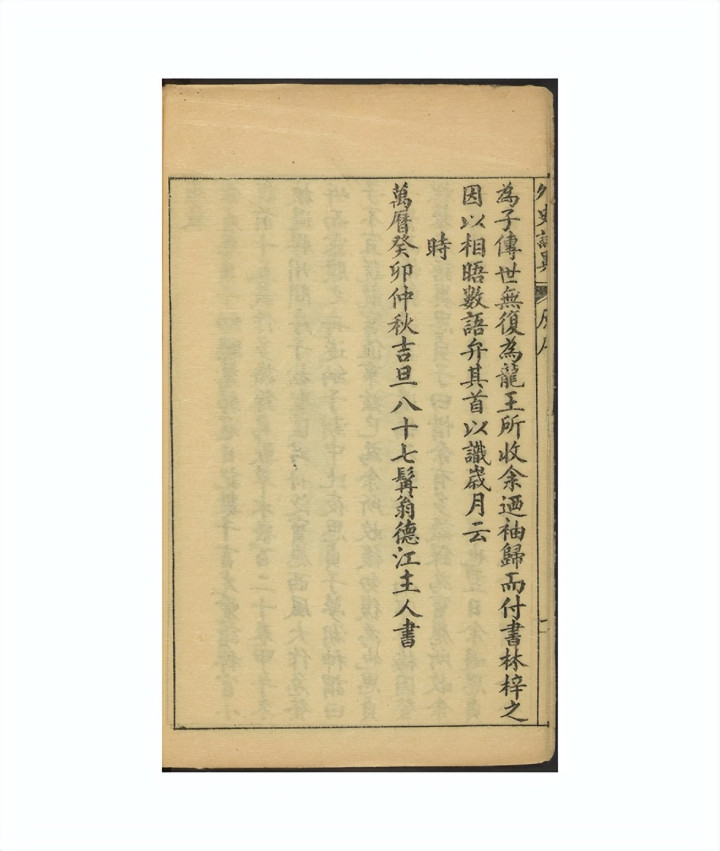 為子傳世無復為龍王所收余迺袖歸而付書林梓之
因以相晤數語弁其首以識歲月云
時
萬曆癸卯仲秋吉旦八十七髯翁德江主人書